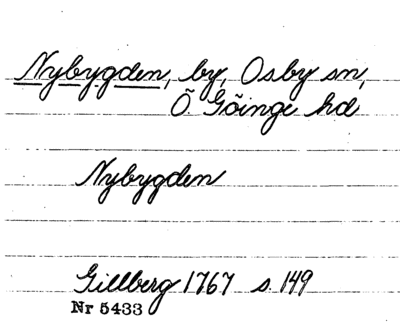 Nybygden, by, Osby sn,
Ö. Göinge hd
Nybygden
Gillberg 1767 s. 149
Nr 5433